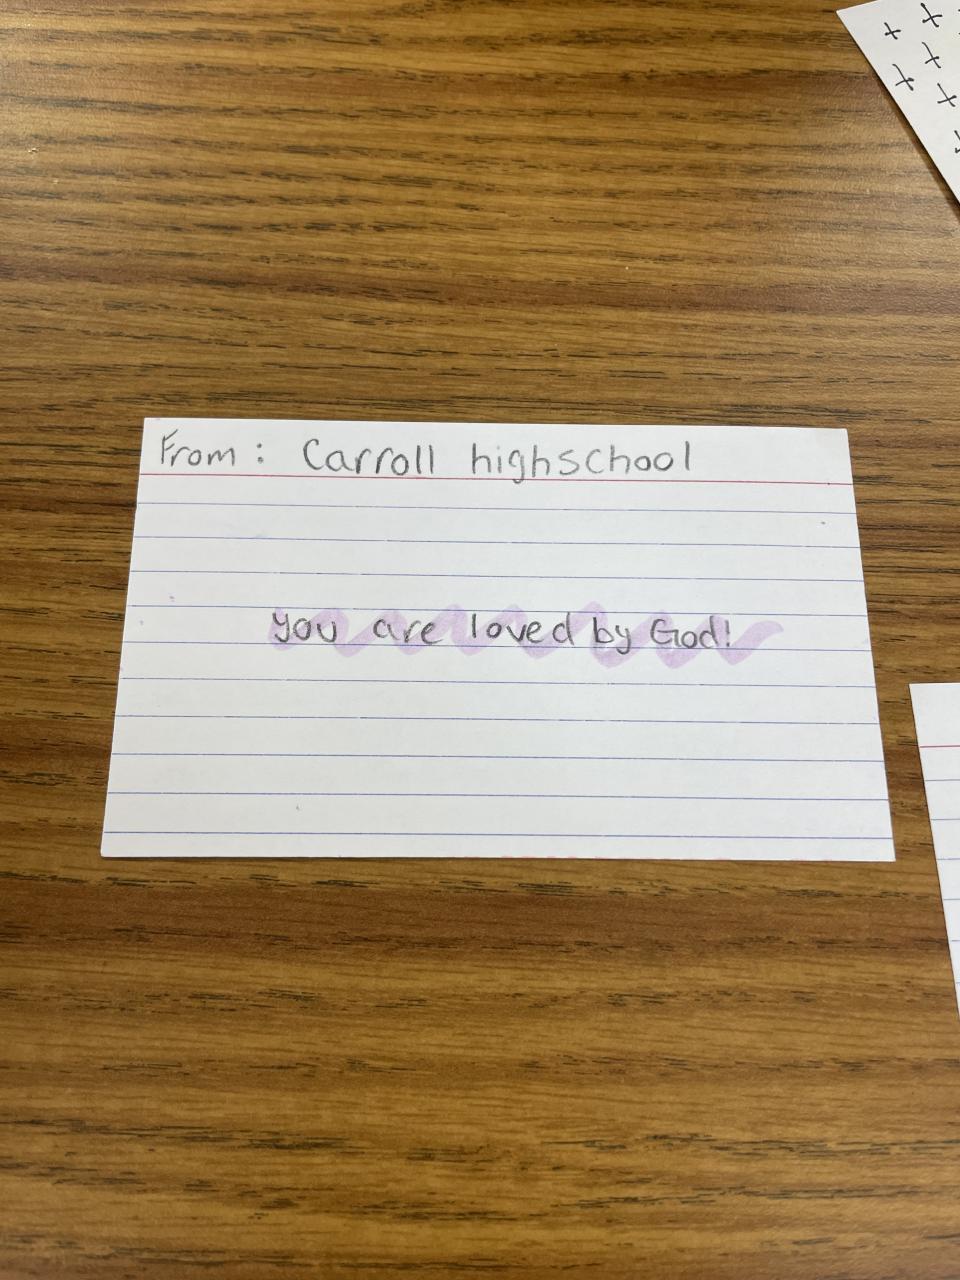 From: Carroll highschool
you are loved by God!